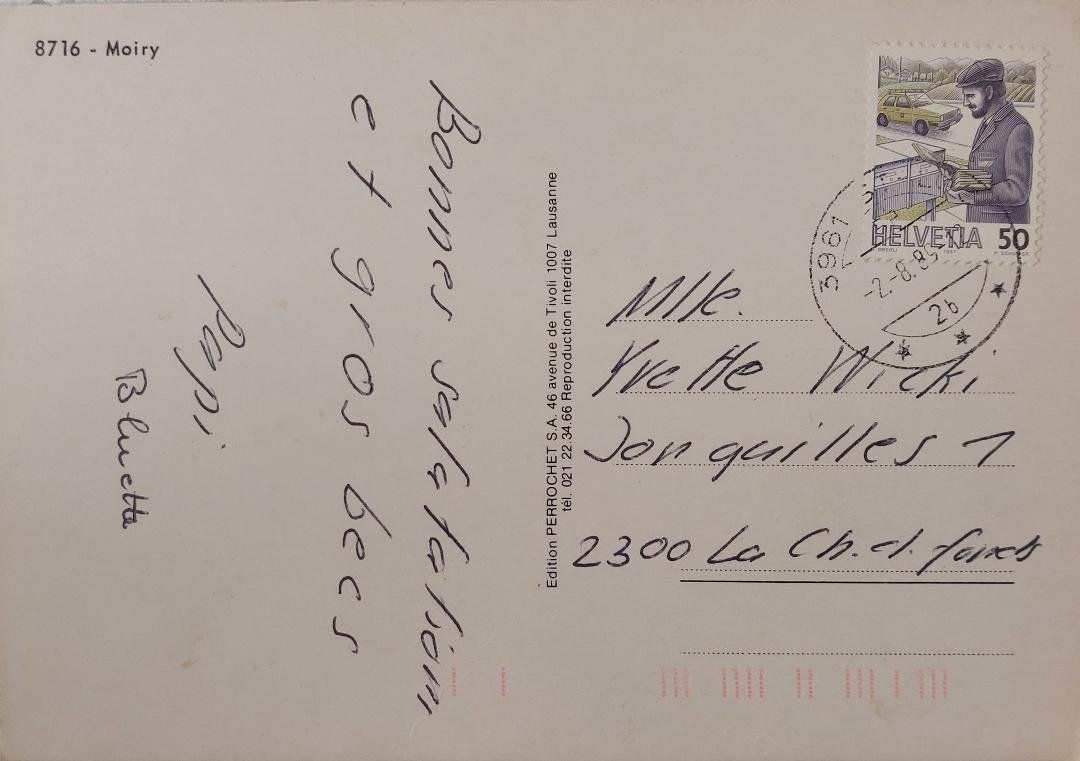 8716 - Moiry
Bonnes salutation
et gros becs
Papi
Bluette
Edition PERROCHET S.A. 46 avenue de Tivoli 1007 Lausanne
tél. 021 22.34.66 Reproduction interdite
HELVETIA 50
3961
-2.-8.89
2b
Mlle.
Yvette Wicki
Jonquilles 1
2300 La Ch.d.fonds